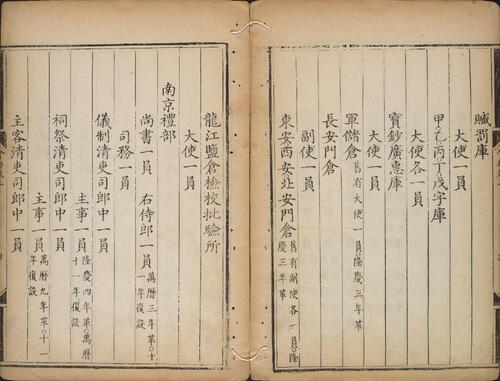 贓罰庫
大使一員
甲乙丙丁戊字庫
大使各一員
寶鈔廣惠庫
大使一員
軍儲倉舊有大使一員隆慶三年革
長安門倉
副使一員
東安西安北安門倉舊有副使各一員隆
慶三年革
龍江鹽倉檢校批驗所
大使一員
南京禮部
尚書一員 右侍郎一員萬曆三年革○十
一年復設
司務一員
儀制清吏司郎中一員
主事一員隆慶四年革○萬曆
十一年復設
祠祭清吏司郎中一員
主事一員萬曆九年革○十一
年復設
主客清吏司郎中一員